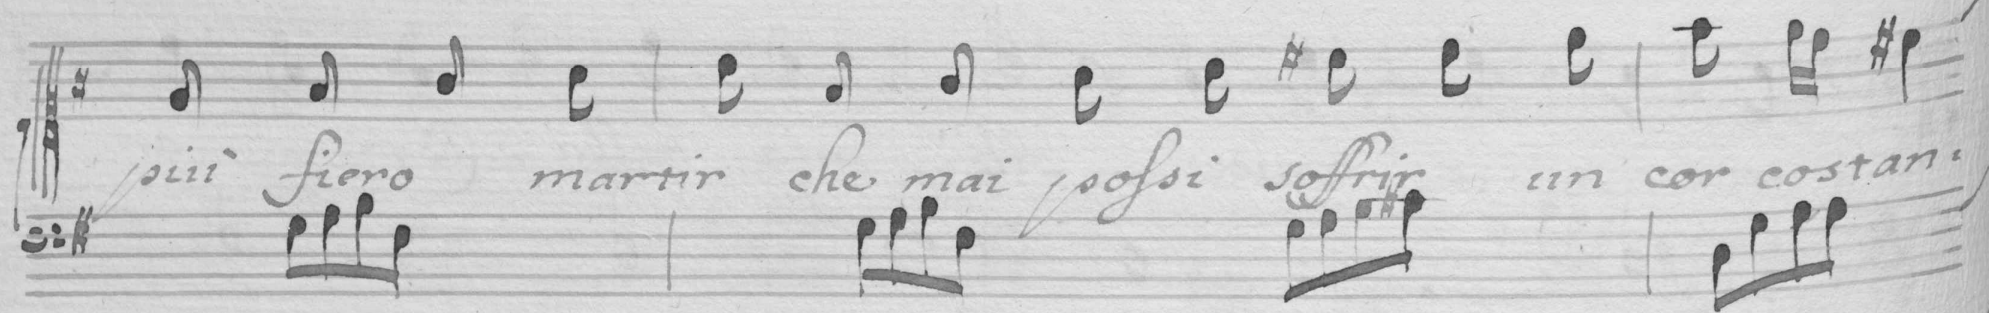 più fiero martir che mai possi soffrir un cor costan: